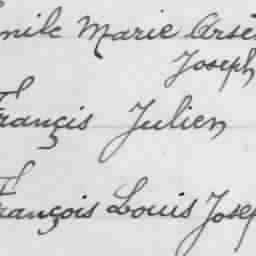 Emile Marie Arsè
Joseph
Français Julien
François Louis Josep